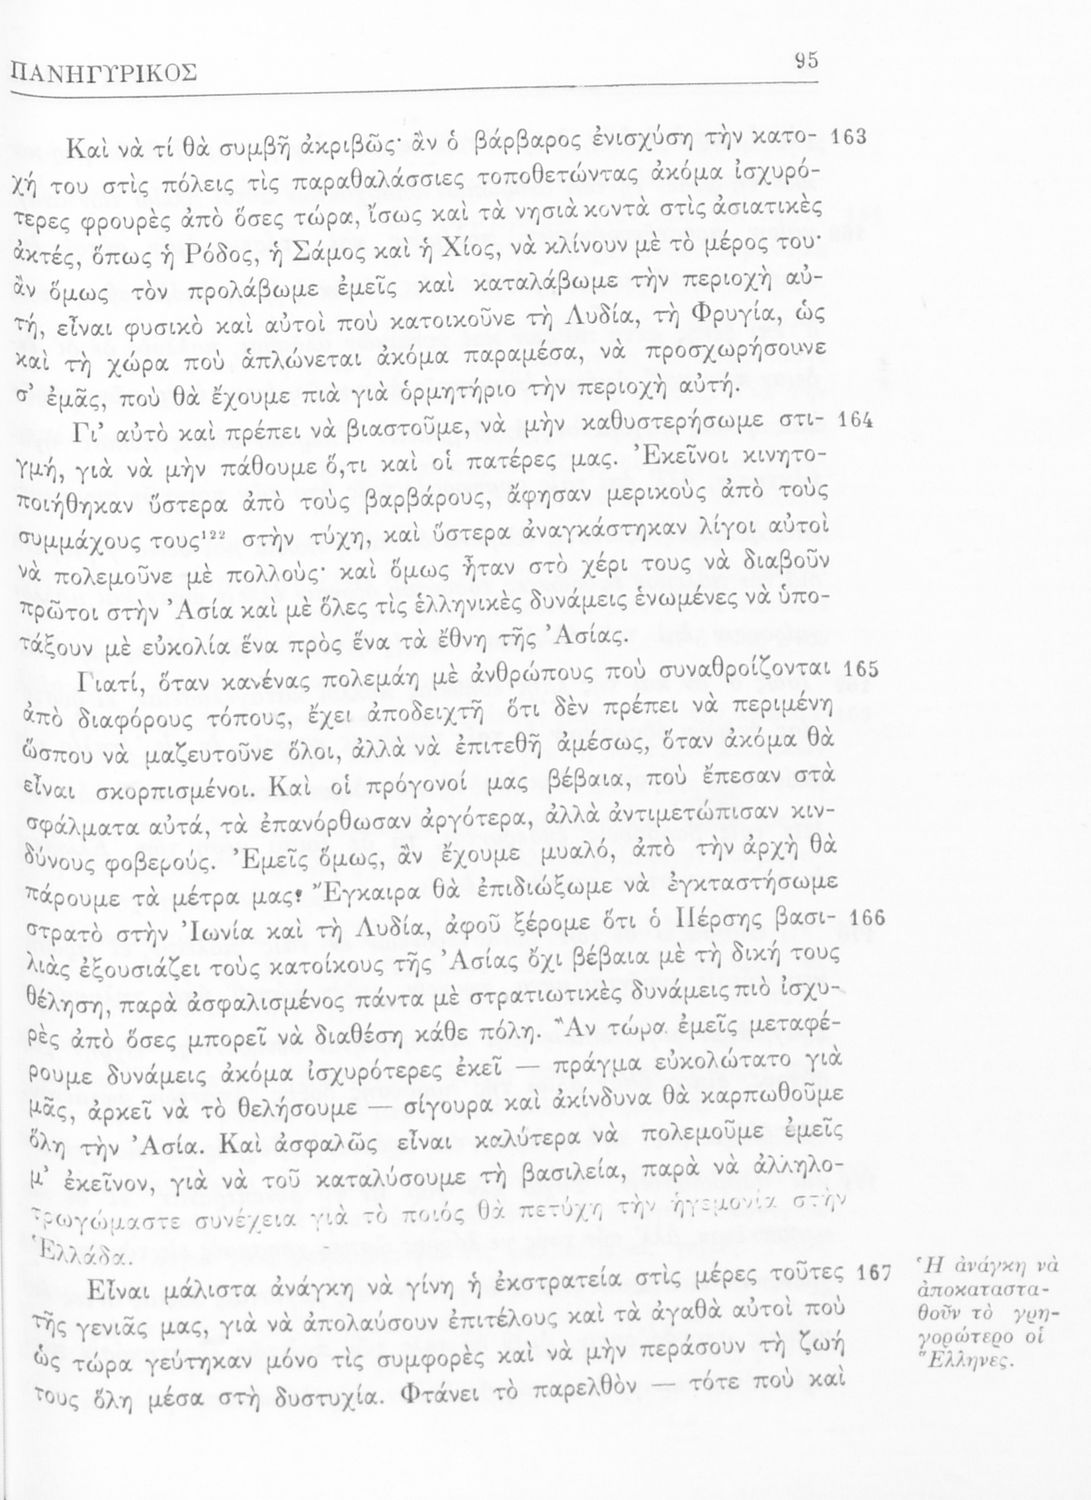 ΠΑΝΗΓΥΡΙΚΟΣ 95
Καὶ νὰ τί θὰ συμβῆ ἀκριβῶς· ἂν ὁ βάρβαρος ἐνισχύση τὴν κατο- 163
χή του στὶς πόλεις τὶς παραθαλάσσιες τοποθετώντας ἀκόμα ἰσχυρό-
τερες φρουρὲς ἀπὸ ὅσες τώρα, ἴσως καὶ τὰ νησιὰ κοντὰ στὶς ἀσιατικὲς
ἀκτές, ὅπως ἡ Ρόδος, ἡ Σάμος καὶ ἡ Χίος, νὰ κλίνουν μὲ τὸ μέρος του·
ἂν ὅμως τὸν προλάβωμε ἐμεῖς καὶ καταλάβωμε τὴν περιοχὴ αὐ-
τή, εἶναι φυσικὸ καὶ αὐτοὶ ποὺ κατοικοῦνε τὴ Λυδία, τὴ Φρυγία, ὡς
καὶ τὴ χώρα ποὺ ἁπλώνεται ἀκόμα παραμέσα, νὰ προσχωρήσουνε
σ' ἐμᾶς, ποὺ θὰ ἔχουμε πιὰ γιὰ ὁρμητήριο τὴν περιοχὴ αὐτή.
Γι' αὐτὸ καὶ πρέπει νὰ βιαστοῦμε, νὰ μὴν καθυστερήσωμε στι- 164
γμή, γιὰ νὰ μὴν πάθουμε ὅ,τι καὶ οἱ πατέρες μας. Ἐκεῖνοι κινητο-
ποιήθηκαν ὕστερα ἀπὸ τοὺς βαρβάρους, ἄφησαν μερικοὺς ἀπὸ τοὺς
συμμάχους τους¹²² στὴν τύχη, καὶ ὕστερα ἀναγκάστηκαν λίγοι αὐτοὶ
νὰ πολεμοῦνε μὲ πολλούς· καὶ ὅμως ἦταν στὸ χέρι τους νὰ διαβοῦν
πρῶτοι στὴν Ἀσία καὶ μὲ ὅλες τὶς ἑλληνικὲς δυνάμεις ἑνωμένες νὰ ὑπο-
τάξουν μὲ εὐκολία ἕνα πρὸς ἕνα τὰ ἔθνη τῆς Ἀσίας.
Γιατί, ὅταν κανένας πολεμάη μὲ ἀνθρώπους ποὺ συναθροίζονται 165
ἀπὸ διαφόρους τόπους, ἔχει ἀποδειχτῆ ὅτι δὲν πρέπει νὰ περιμένη
ὥσπου νὰ μαζευτοῦνε ὅλοι, ἀλλὰ νὰ ἐπιτεθῆ ἀμέσως, ὅταν ἀκόμα θὰ
εἶναι σκορπισμένοι. Καὶ οἱ πρόγονοί μας βέβαια, ποὺ ἔπεσαν στὰ
σφάλματα αὐτά, τὰ ἐπανόρθωσαν ἀργότερα, ἀλλὰ ἀντιμετώπισαν κιν-
δύνους φοβερούς. Ἐμεῖς ὅμως, ἂν ἔχουμε μυαλό, ἀπὸ τὴν ἀρχὴ θὰ
πάρουμε τὰ μέτρα μας· Ἔγκαιρα θὰ ἐπιδιώξωμε νὰ ἐγκαταστήσωμε
στρατὸ στὴν Ἰωνία καὶ τὴ Λυδία, ἀφοῦ ξέρομε ὅτι ὁ Πέρσης βασι- 166
λιὰς ἐξουσιάζει τοὺς κατοίκους τῆς Ἀσίας ὄχι βέβαια μὲ τὴ δική τους
θέληση, παρὰ ἀσφαλισμένος πάντα μὲ στρατιωτικὲς δυνάμεις πιὸ ἰσχυ-
ρὲς ἀπὸ ὅσες μπορεῖ νὰ διαθέση κάθε πόλη. Ἂν τώρα ἐμεῖς μεταφέ-
ρουμε δυνάμεις ἀκόμα ἰσχυρότερες ἐκεῖ — πράγμα εὐκολώτατο γιὰ
μᾶς, ἀρκεῖ νὰ τὸ θελήσουμε — σίγουρα καὶ ἀκίνδυνα θὰ καρπωθοῦμε
ὅλη τὴν Ἀσία. Καὶ ἀσφαλῶς εἶναι καλύτερα νὰ πολεμοῦμε ἐμεῖς
μ' ἐκεῖνον, γιὰ νὰ τοῦ καταλύσουμε τὴ βασιλεία, παρὰ νὰ ἀλληλο-
τρωγώμαστε συνέχεια γιὰ τὸ ποιός θὰ πετύχη τὴν ἡγεμονία στὴν
Ἑλλάδα.
Εἶναι μάλιστα ἀνάγκη νὰ γίνη ἡ ἐκστρατεία στὶς μέρες τοῦτες 167
τῆς γενιᾶς μας, γιὰ νὰ ἀπολαύσουν ἐπιτέλους καὶ τὰ ἀγαθὰ αὐτοὶ ποὺ
ὡς τώρα γεύτηκαν μόνο τὶς συμφορὲς καὶ νὰ μὴν περάσουν τὴ ζωή
τους ὅλη μέσα στὴ δυστυχία. Φτάνει τὸ παρελθὸν — τότε ποὺ καὶ
Ἡ ἀνάγκη νὰ
ἀποκαταστα-
θοῦν τὸ γρη-
γορώτερο οἱ
Ἕλληνες.